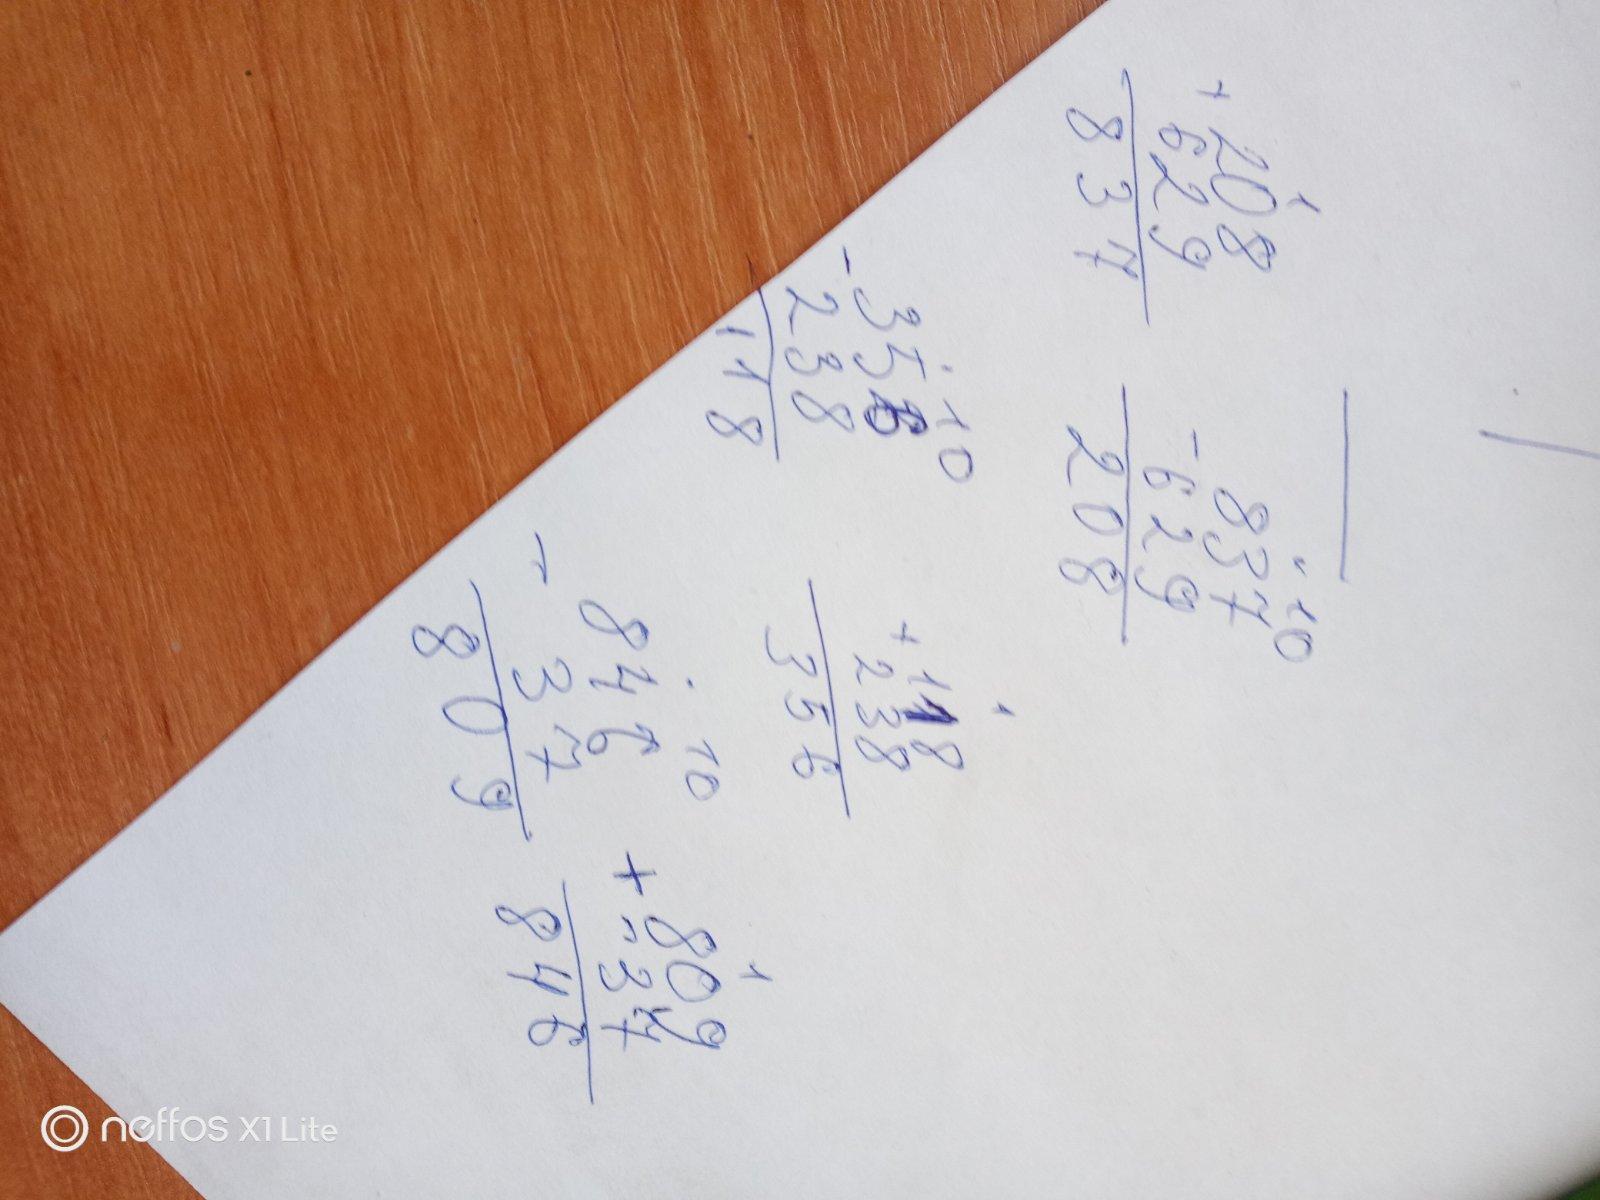 1
+ 208
629
837
. 10
- 837
629
208
. 10
- 356
238
118
1
+ 118
238
356
. 10
- 846
37
809
1
+ 809
37
846
neffos X1 Lite